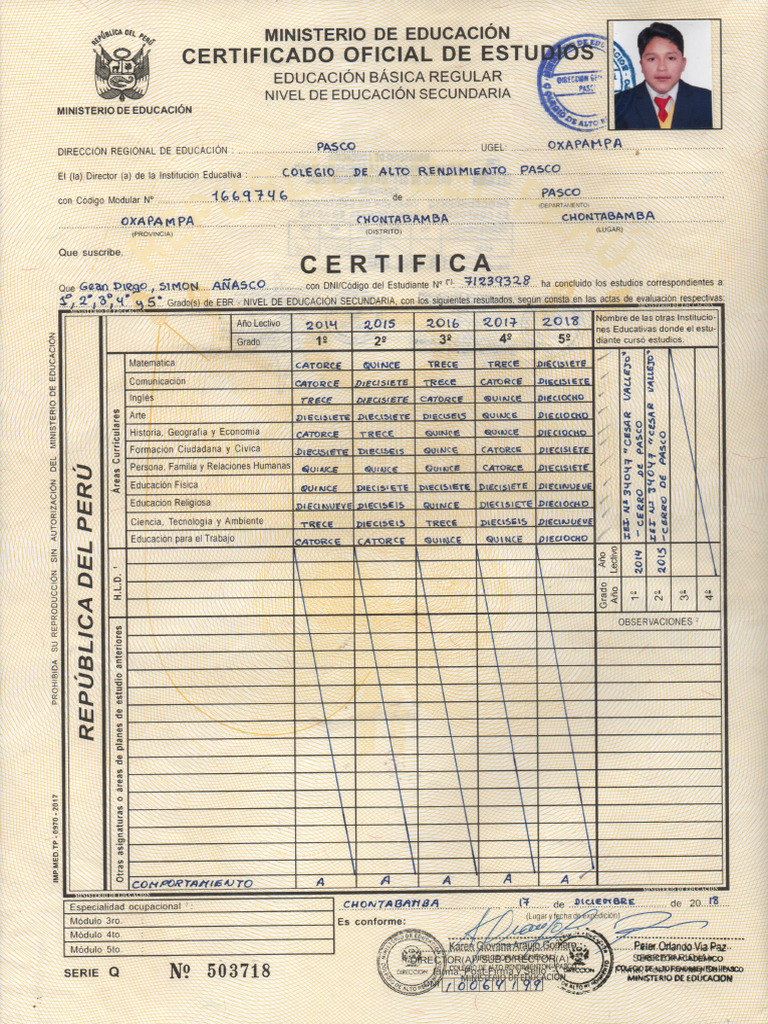 REPÚBLICA DEL PERÚ
MINISTERIO DE EDUCACIÓN
MINISTERIO DE EDUCACIÓN
CERTIFICADO OFICIAL DE ESTUDIOS
EDUCACIÓN BÁSICA REGULAR
NIVEL DE EDUCACIÓN SECUNDARIA
DIRECCIÓN REGIONAL DE EDUCACIÓN : PASCO UGEL: OXAPAMPA
El (la) Director (a) de la Institución Educativa : COLEGIO DE ALTO RENDIMIENTO PASCO
con Código Modular Nº 1669746 de PASCO
(DEPARTAMENTO)
OXAPAMPA CHONTABAMBA CHONTABAMBA
(PROVINCIA) (DISTRITO) (LUGAR)
Que suscribe,
CERTIFICA
Que Gean Diego, SIMON AÑASCO con DNI/Código del Estudiante Nº (*) 71239328 ha concluido los estudios correspondientes a:
1º, 2º, 3º, 4º y 5º Grado(s) de EBR - NIVEL DE EDUCACIÓN SECUNDARIA, con los siguientes resultados, según consta en las actas de evaluación respectivas:
Año Lectivo 2014 2015 2016 2017 2018
Grado 1º 2º 3º 4º 5º
Nombre de las otras Institucio-
nes Educativas donde el estu-
diante cursó estudios.
Áreas Curriculares
Matemática CATORCE QUINCE TRECE TRECE DIECISIETE
Comunicación CATORCE DIECISIETE TRECE CATORCE DIECISIETE
Inglés TRECE DIECISIETE CATORCE QUINCE DIECIOCHO
Arte DIECISIETE DIECISIETE DIECISEIS QUINCE DIECIOCHO
Historia, Geografía y Economía CATORCE TRECE QUINCE QUINCE DIECIOCHO
Formación Ciudadana y Cívica DIECISIETE DIECISEIS QUINCE CATORCE DIECISIETE
Persona, Familia y Relaciones Humanas QUINCE QUINCE QUINCE CATORCE DIECISIETE
Educación Física QUINCE DIECISIETE DIECISIETE DIECISIETE DIECINUEVE
Educación Religiosa DIECINUEVE DIECISEIS QUINCE DIECISIETE DIECIOCHO
Ciencia, Tecnología y Ambiente TRECE DIECISEIS TRECE DIECISEIS DIECINUEVE
Educación para el Trabajo CATORCE CATORCE QUINCE QUINCE DIECIOCHO
IEI Nº 34047 "CESAR VALLEJO"
- CERRO DE PASCO
IEI Nº 34047 "CESAR VALLEJO"
- CERRO DE PASCO
Año Lectivo 2014 2015
Grado Año 1º 2º 3º 4º
H.L.D. ¹
OBSERVACIONES ²
Otras asignaturas o áreas de planes de estudio anteriores
COMPORTAMIENTO A A A A A
REPÚBLICA DEL PERÚ
PROHIBIDA SU REPRODUCCIÓN SIN AUTORIZACIÓN DEL MINISTERIO DE EDUCACIÓN
IMP.MED.TP - 0970 - 2017
Especialidad ocupacional ³ :
Módulo 3ro.
Módulo 4to. :
Módulo 5to.
SERIE Q Nº 503718
CHONTABAMBA 17 de DICIEMBRE de 2018
(Lugar y fecha de expedición)
Es conforme:
Karen Giovana Araujo Gomero
DIRECTOR(A)/SUB DIRECTOR(A)
MINISTERIO DE EDUCACIÓN
10064199
Peter Orlando Via Paz
COLEGIO DE ALTO RENDIMIENTO PASCO
MINISTERIO DE EDUCACIÓN